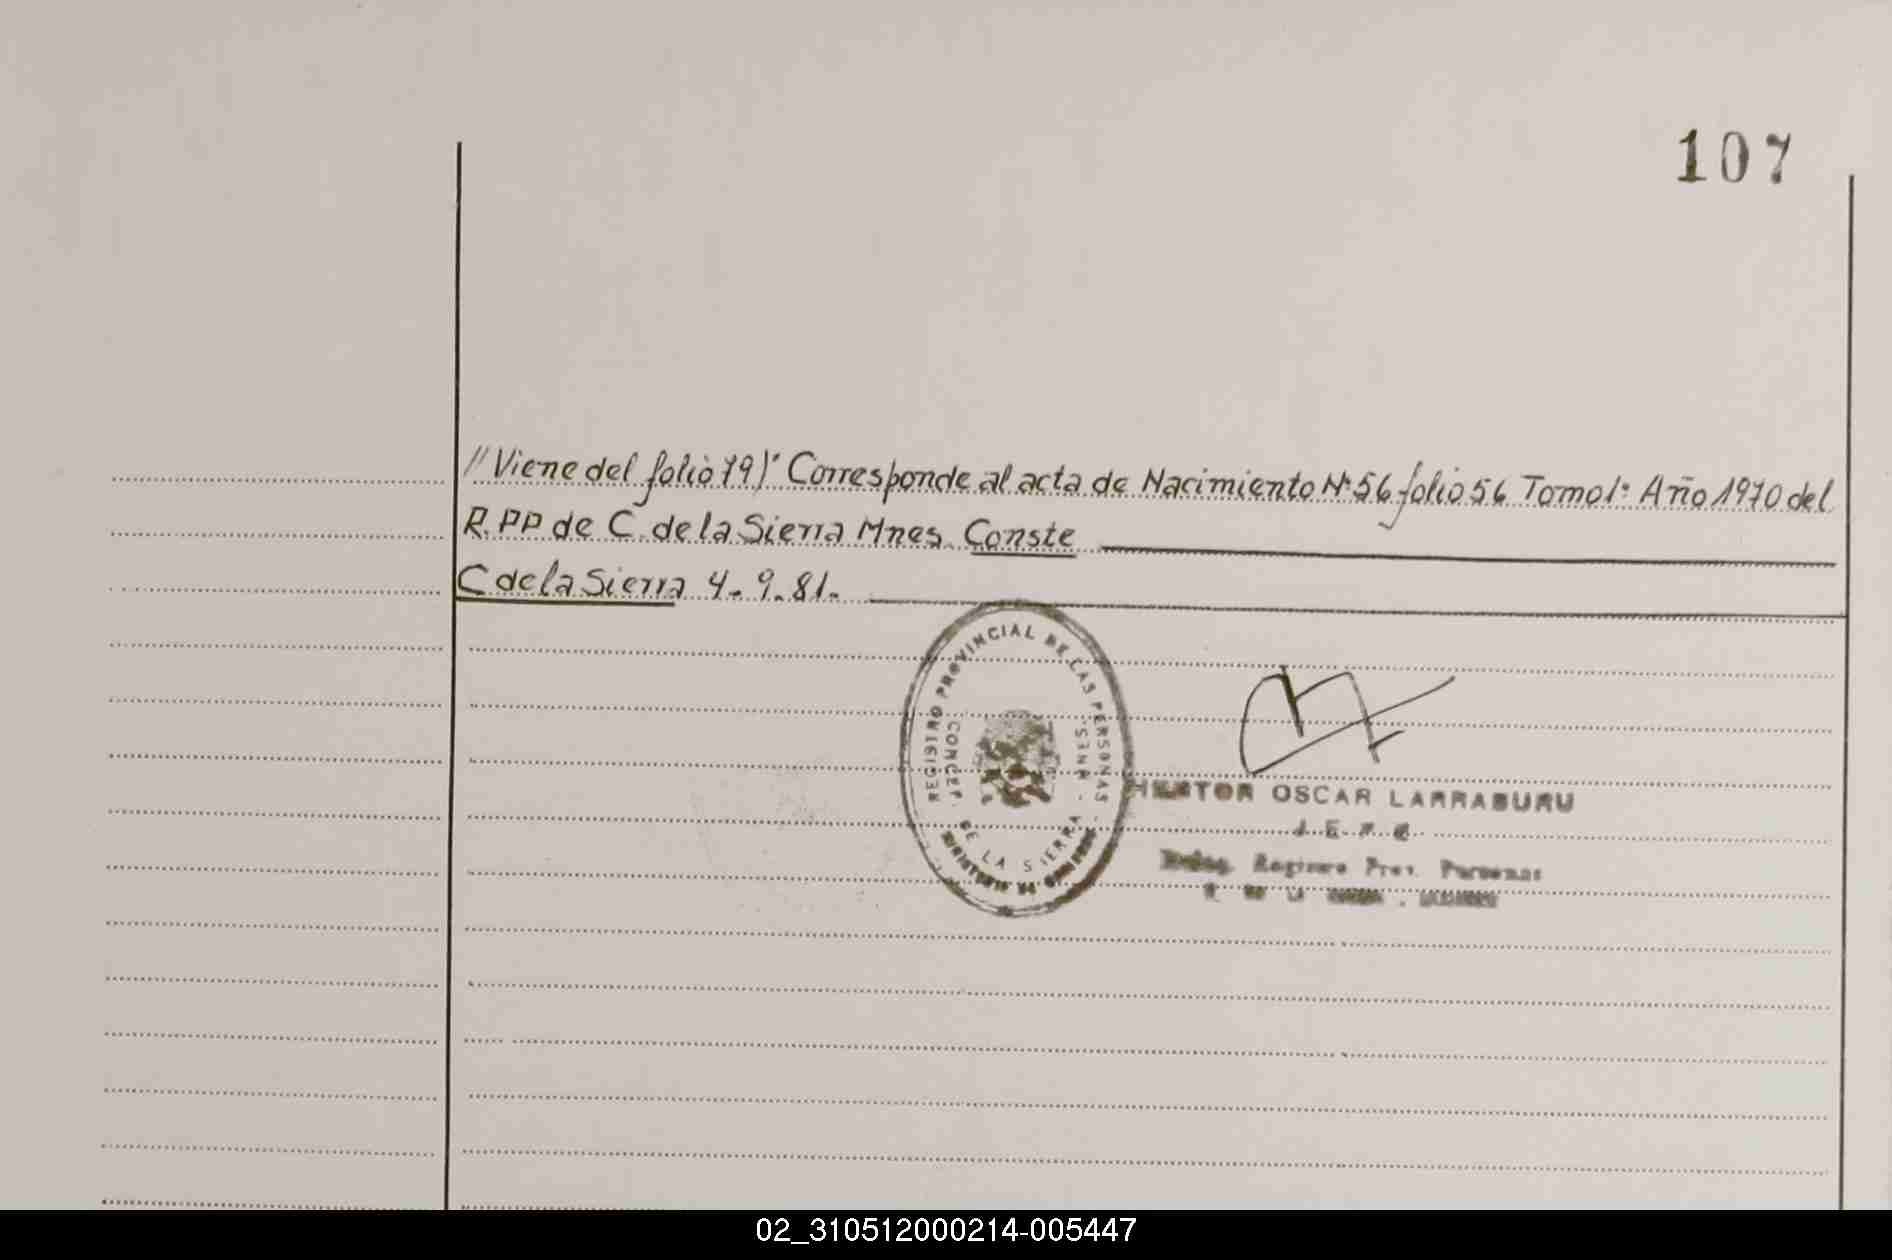 107
//Viene del folio 79)" Corresponde al acta de Nacimiento Nº56 folio 56 Tomo 1º Año 1970 del
R.PP de C. de la Sierra Mnes. Conste
C de la Sierra 4.9.81.
REGISTRO PROVINCIAL DE LAS PERSONAS
CONCEP. DE LA SIERRA - MNES.
MINISTERIO DE GOBIERNO
HECTOR OSCAR LARRABURU
JEFE
Deleg. Registro Prov. Personas
DE LA
02_310512000214-005447